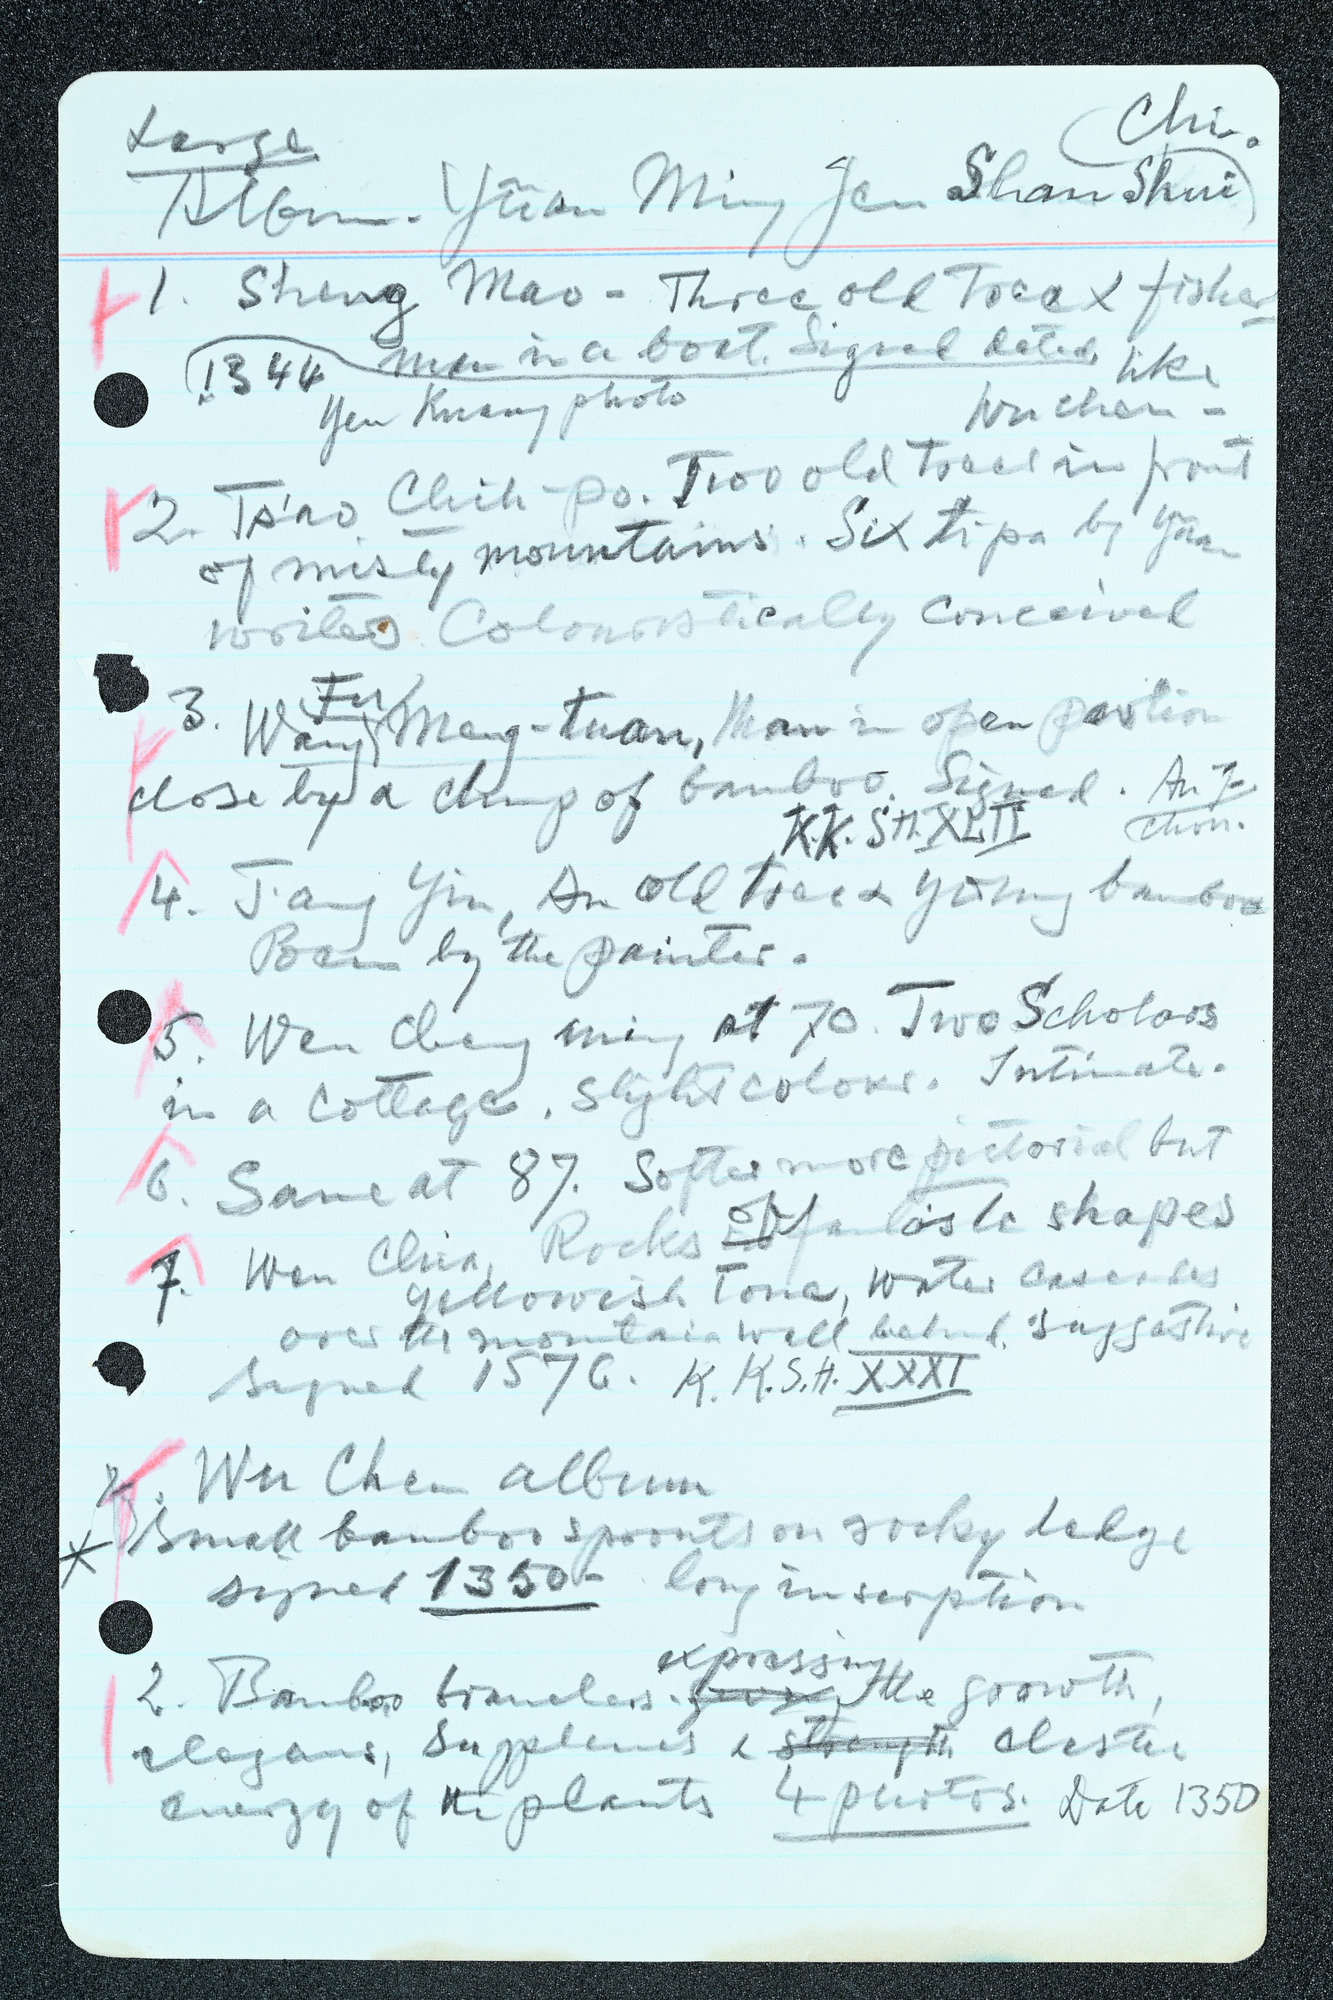 Large
Chi.
Album. Yüan Ming Jen Shan Shui
1. Sheng Mao - Three old trees & fisher
man in a boat. Signed dated, like
1344
Yen Kuang photo Wu Chen -
2. Ts'ao Chih-po. Two old trees in front
of misty mountains. Six tipa by Yüan
writers. Colouristically conceived
Fu
3. Wang Meng-tuan, Man in open pavilion
close by a clump of bamboo. Signed.
K.K. S.H. XLII
4. T'ang Yin, An old tree & young bamboo
Poem by the painter.
5. Wen Cheng ming at 70. Two Scholars
in a cottage. Slight colour. Intimate.
6. Same at 87. Softer more pictorial but
7. Wen Chia, Rocks of fantastic shapes
yellowish tone, water cascades
over the mountain wall behind. Suggestive
Signed 1576. K. K.S.H. XXXI
1. Wu Chen album
Small bamboo sprouts on rocky ledge
signed 1350- long inscription
expressing
2. Bamboo branches. the growth,
elegans, supplenes & strength elastic
energy of the plants 4 photos. Date 1350